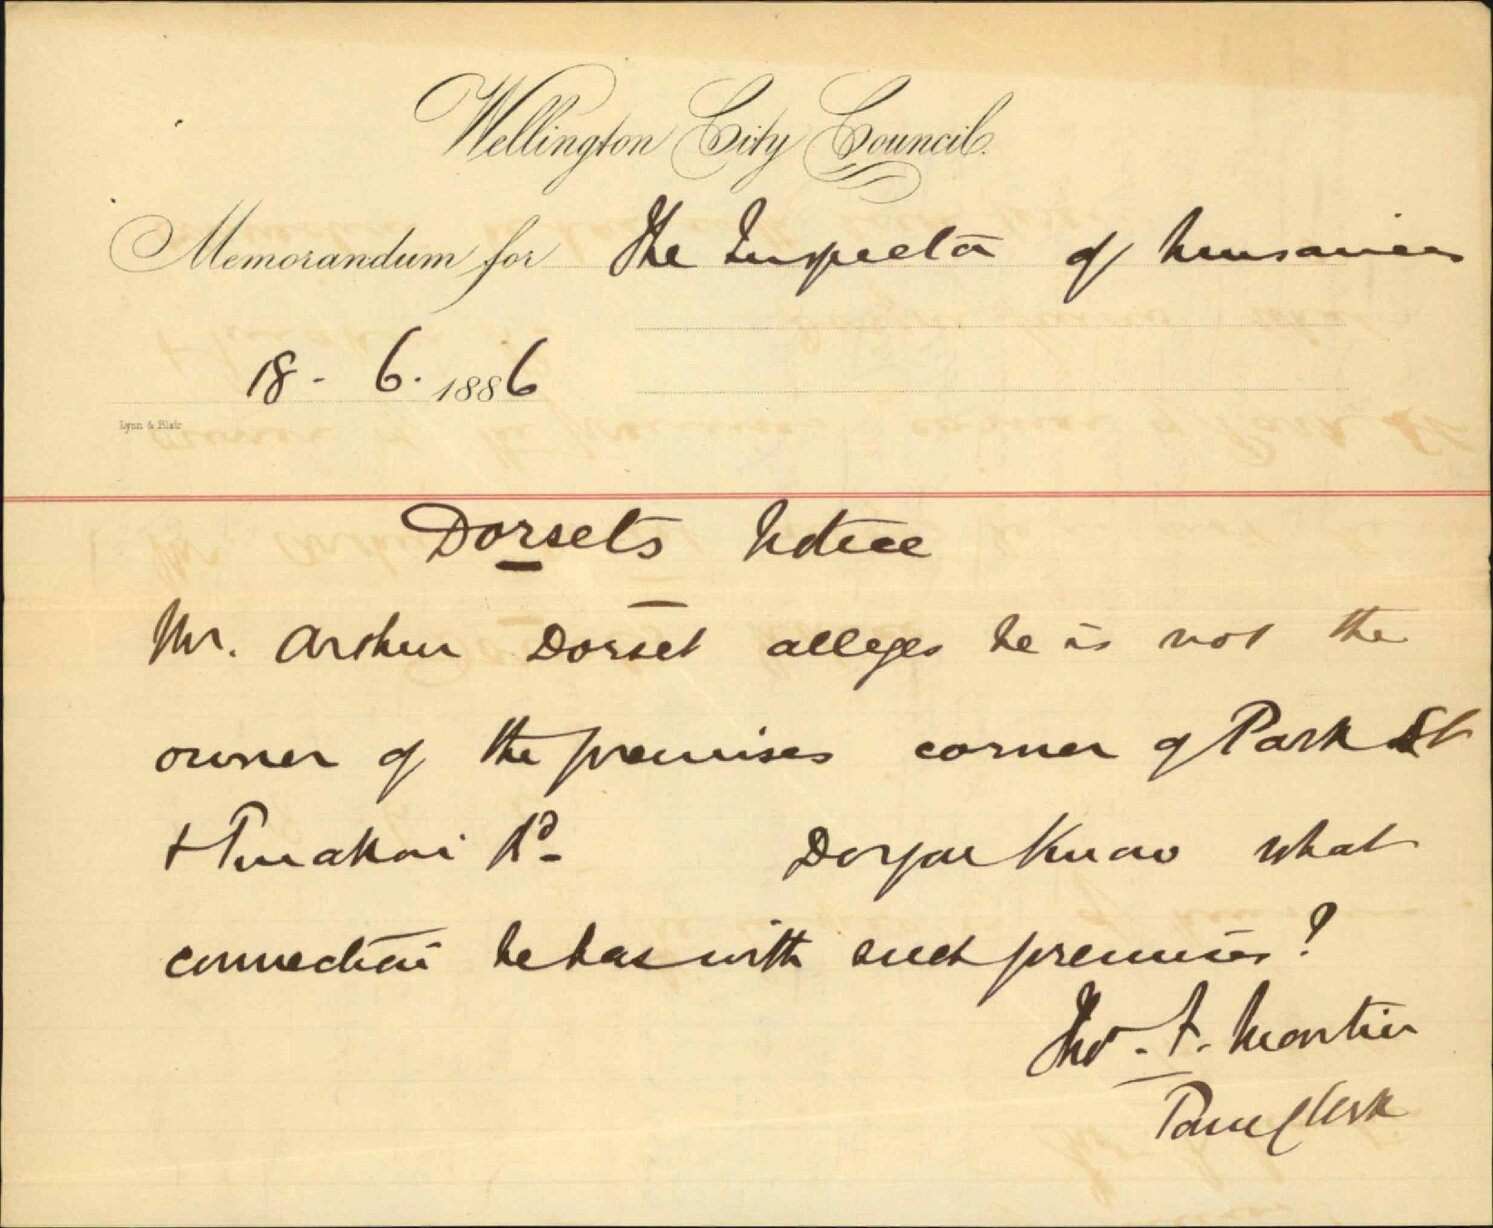 Wellington City Council.
Memorandum for The Inspector of Nuisances
18 - 6. 1886
Lyon & Blair
Dorsets Notice
Mr. Arthur Dorset alleges he is not the
owner of the premises corner of Park St
+ Tinakori Rd. Do you know what
connection he has with such premises?
Thos. F. Martin
Town Clerk